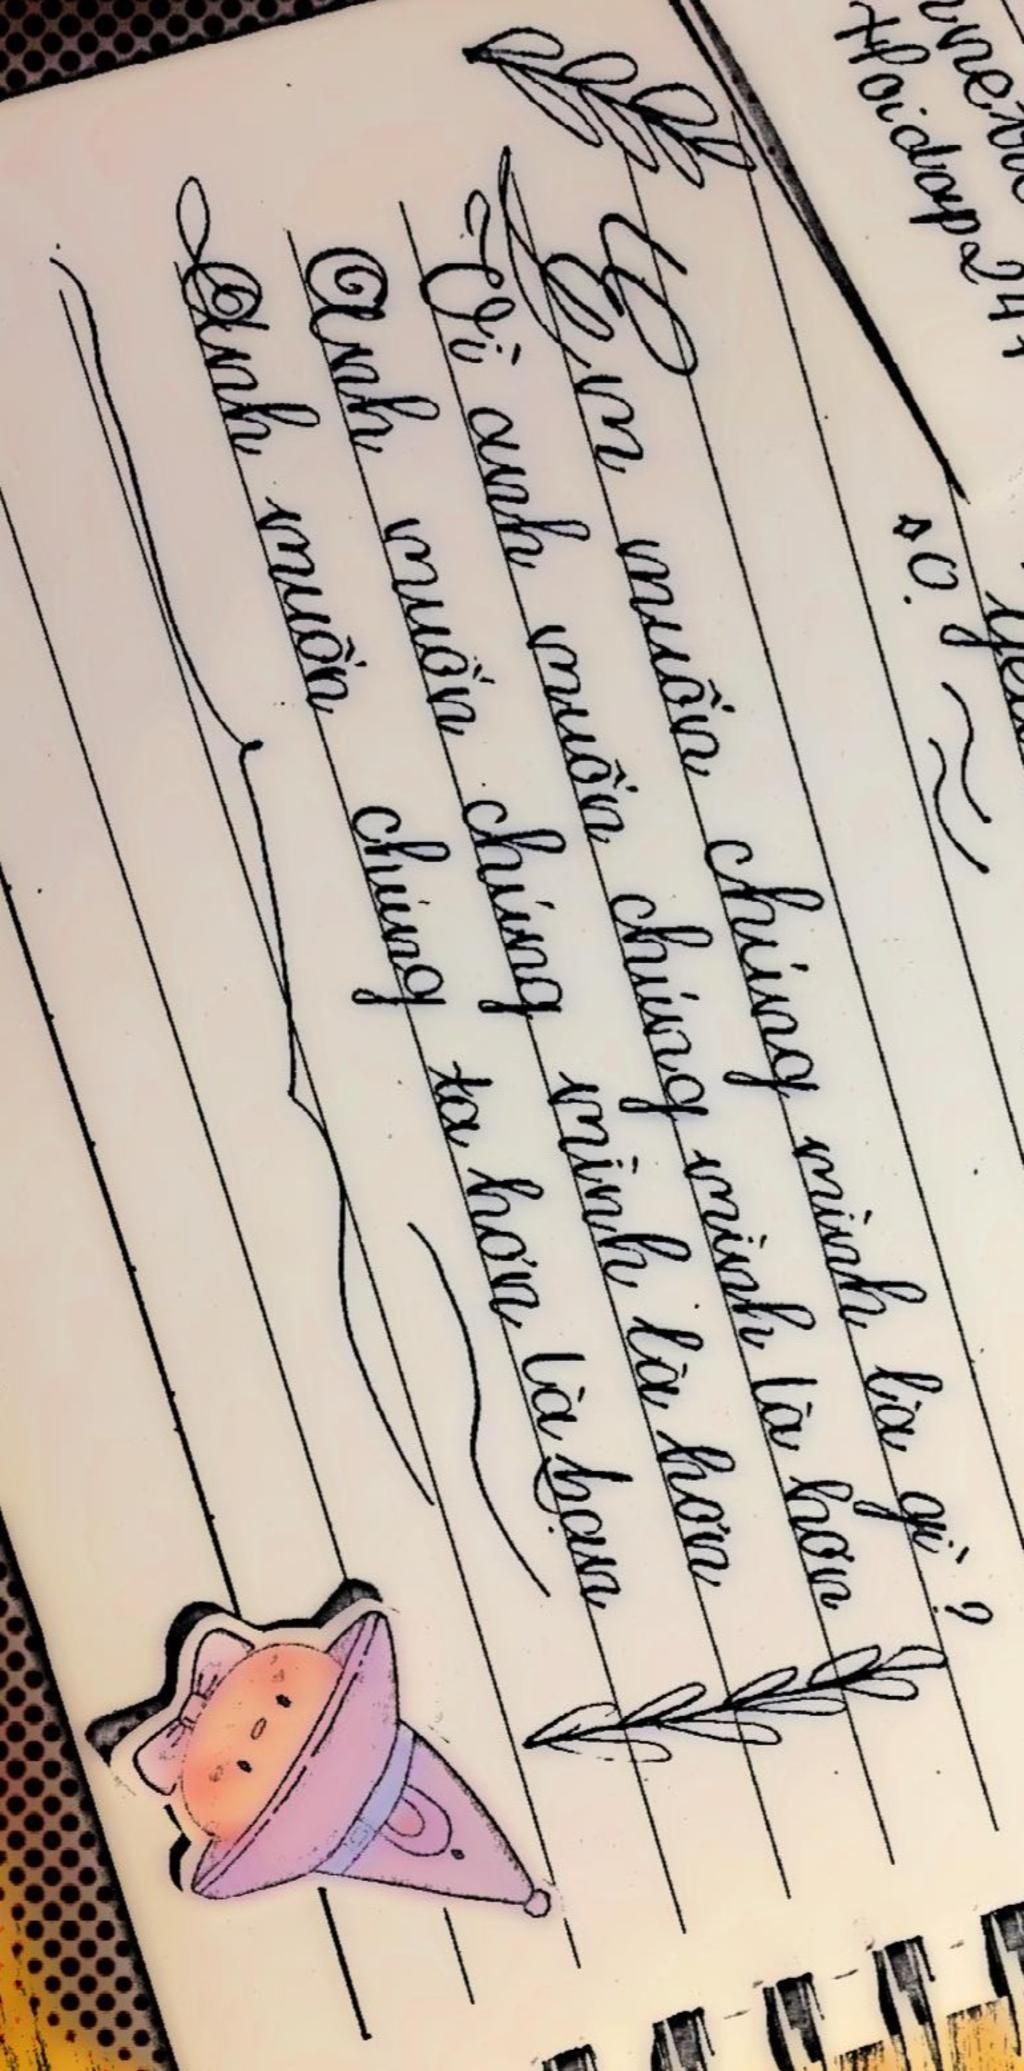 Hoidap247
Em muốn chúng mình là gì?
Vì anh muốn chúng mình là hơn
Anh muốn chúng mình là hơn
Anh muốn chúng ta hơn là bạn